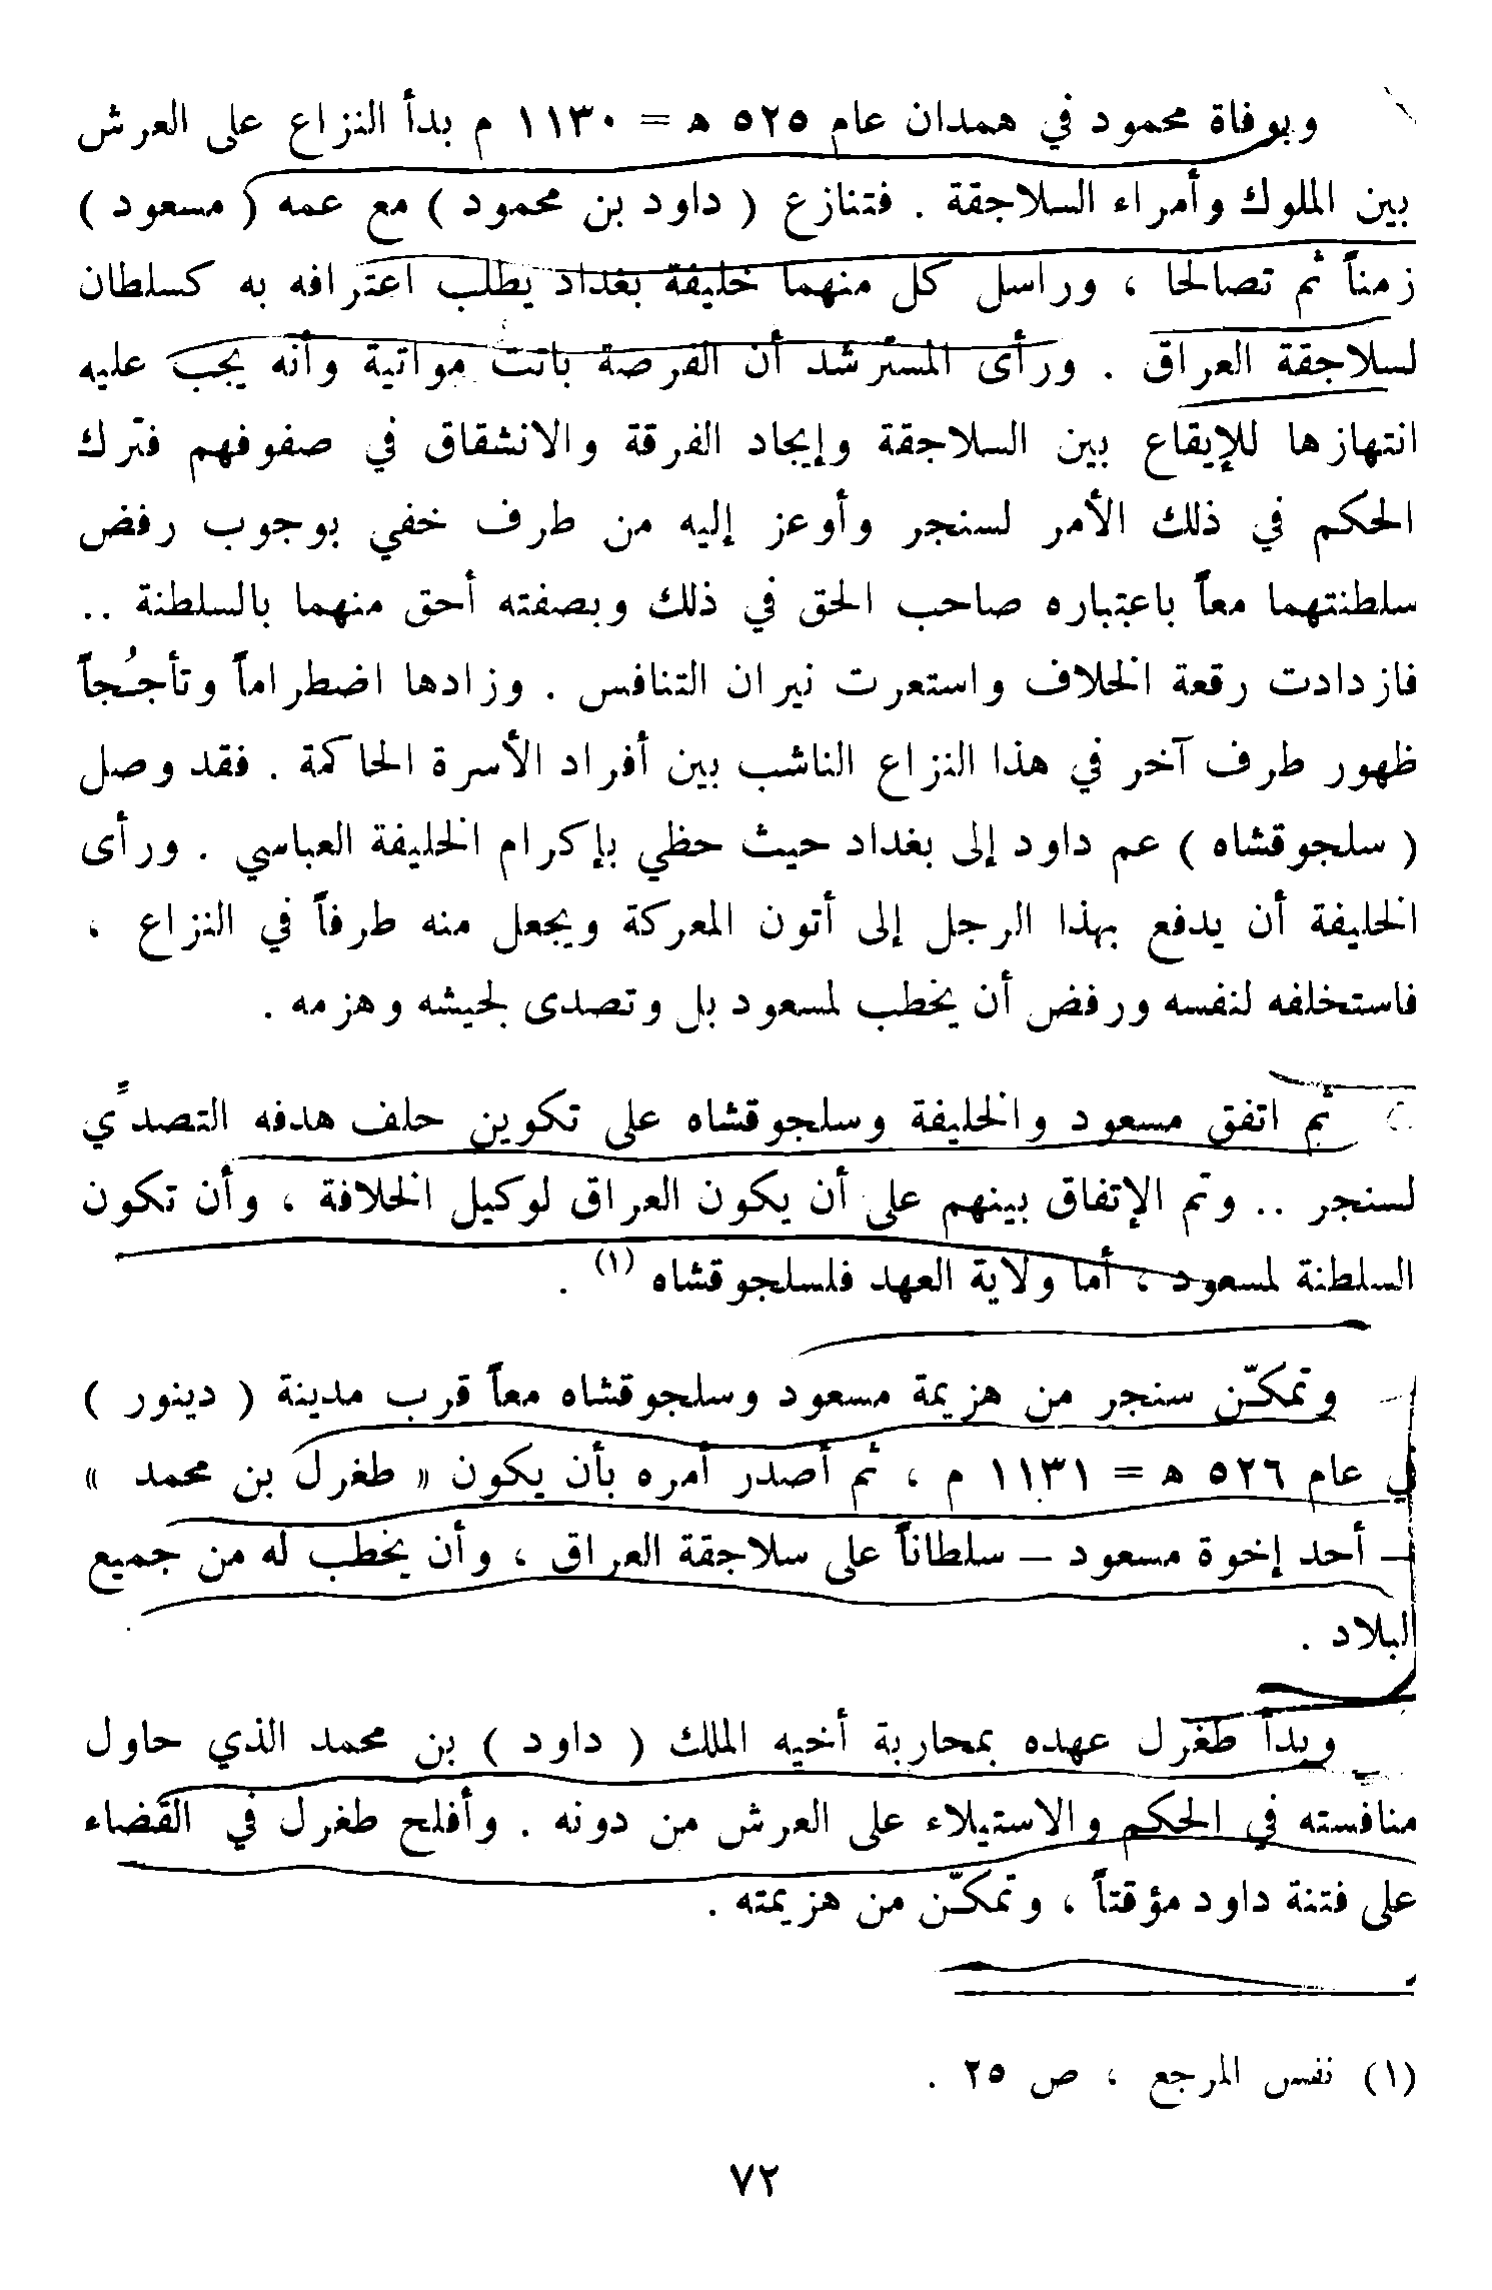 وبوفاة محمود في همدان عام ٥٢٥ هـ = ١١٣٠ م بدأ النزاع على العرش
بين الملوك وأمراء السلاجقة . فتنازع ( داود بن محمود ) مع عمه ( مسعود )
زمناً ثم تصالحا ، وراسل كل منهما خليفة بغداد يطلب اعترافه به كسلطان
لسلاجقة العراق . ورأى المسترشد أن الفرصة باتت مواتية وأنه يجب عليه
انتهازها للإيقاع بين السلاجقة وإيجاد الفرقة والانشقاق في صفوفهم فترك
الحكم في ذلك الأمر لسنجر وأوعز إليه من طرف خفي بوجوب رفض
سلطنتهما معاً باعتباره صاحب الحق في ذلك وبصفته أحق منهما بالسلطنة ..
فازدادت رقعة الخلاف واستعرت نيران التنافس . وزادها اضطراماً وتأجُجاً
ظهور طرف آخر في هذا النزاع الناشب بين أفراد الأسرة الحاكمة . فقد وصل
( سلجوقشاه ) عم داود إلى بغداد حيث حظي بإكرام الخليفة العباسي . ورأى
الخليفة أن يدفع بهذا الرجل إلى أتون المعركة ويجعل منه طرفاً في النزاع ،
فاستخلفه لنفسه ورفض أن يخطب لمسعود بل وتصدى لجيشه وهزمه .
ثم اتفق مسعود والخليفة وسلجوقشاه على تكوين حلف هدفه التصدِّي
لسنجر .. وتم الإتفاق بينهم على أن يكون العراق لوكيل الخلافة ، وأن تكون
السلطنة لمسعود ، أما ولاية العهد فلسلجوقشاه (١) .
وتمكّن سنجر من هزيمة مسعود وسلجوقشاه معاً قرب مدينة ( دينور )
في عام ٥٢٦ هـ = ١١٣١ م ، ثم أصدر أمره بأن يكون « طغرل بن محمد »
– أحد إخوة مسعود – سلطاناً على سلاجقة العراق ، وأن يخطب له من جميع
البلاد .
وبدأ طغرل عهده بمحاربة أخيه الملك ( داود ) بن محمد الذي حاول
منافسته في الحكم والاستيلاء على العرش من دونه . وأفلح طغرل في القضاء
على فتنة داود مؤقتاً ، وتمكّن من هزيمته .
(١) نفس المرجع ، ص ٢٥ .
٧٢